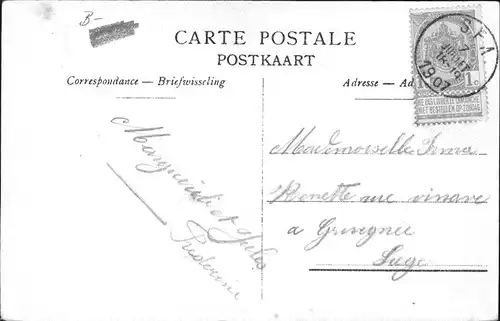 B-
CARTE POSTALE
POSTKAART
Correspondance — Briefwisseling
Adresse — Ad
SY
1907
1c
NE PAS LIVRER LE DIMANCHE
NIET BESTELLEN OP ZONDAG
Marguerite et Jules
Mademoiselle Irma
Renette rue vinave
a Grivegnee
Liege